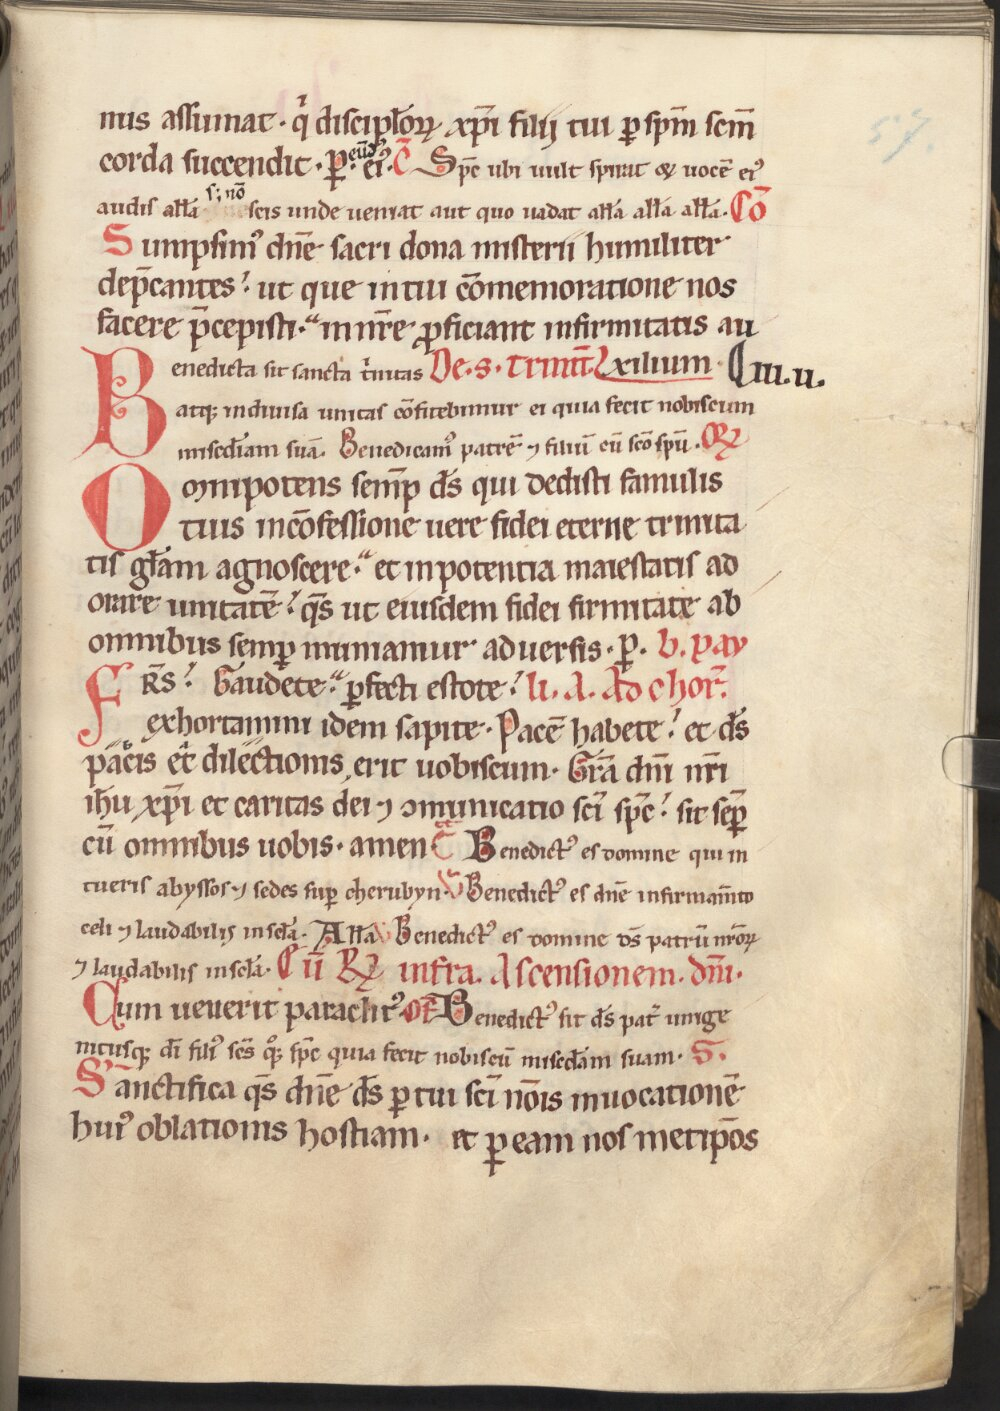 57.
nus assumat · q̇ discipl̄oꝝ xp̄i filij tui ꝑ sp̄m scm̄
corda succendit · P. eūd eiꝰ · C̄ Sp̄c ubi uult spirat ⁊ uocē eiꝰ
audis all̄a s; nō scis unde ueniat aut quo uadat all̄a all̄a all̄a · Cō
Sumpsimꝰ dn̄e sacri dona misterii humiliter
dep̄cantes ut que in tui cōmemoratione nos
facere p̄cepisti · in nr̄e ꝓficiant infirmitatis au
enedicta sit sancta t̄nitas De · s · trinit̄ xilium
B atqꝫ indiuisa unitas cōfitebimur ei quia fecit nobiscum
mised̄iam suā. Benedicamꝰ patrē ⁊ filiū cū sc̄o sp̄u.
Omnipotens semꝑ d̄s qui dedisti famulis
tuis in cōfessione uere fidei eterne trinita
tis gl̄am agnoscere et in potentia maiestatis ad
orare unitatē q̄s ut eiusdem fidei firmitate ab
omnibus semꝑ muniamur aduersis · P. b. pay
FR̄S Gaudete ꝑfecti estote li. A. Ad chor̄.
exhortamini idem sapite · Pacē habete et d̄s
pacis et dilectionis erit uobiscum · Gr̄a dn̄i nr̄i
ih̄u xp̄i et caritas dei ⁊ ꝯmunicatio sc̄i sp̄c sit sēꝑ
cū omnibus uobis · amen C̄ Benedictꝰ es domine qui in
tueris abyssos ⁊ sedes suꝑ cherubyn Benedictꝰ es dn̄e in firmam̄to
celi ⁊ laudabilis in sc̄la · All̄a Benedictꝰ es domine d̄s patrū nr̄oꝝ
⁊ laudabilis in sc̄la · Cū infra Ascensionem · dn̄i ·
Cum uenerit paraclitꝰ · Of̄ Benedictꝰ sit d̄s pat̄ unige
nitusqꝫ d̄i filiꝰ sc̄s qꝫ sp̄c quia fecit nobiscū mised̄am suam · S.
Sanctifica q̄s dn̄e d̄s ꝑ tui sc̄i nōis inuocationē
huiꝰ oblationis hostiam · et ꝑ eam nos metip̄os